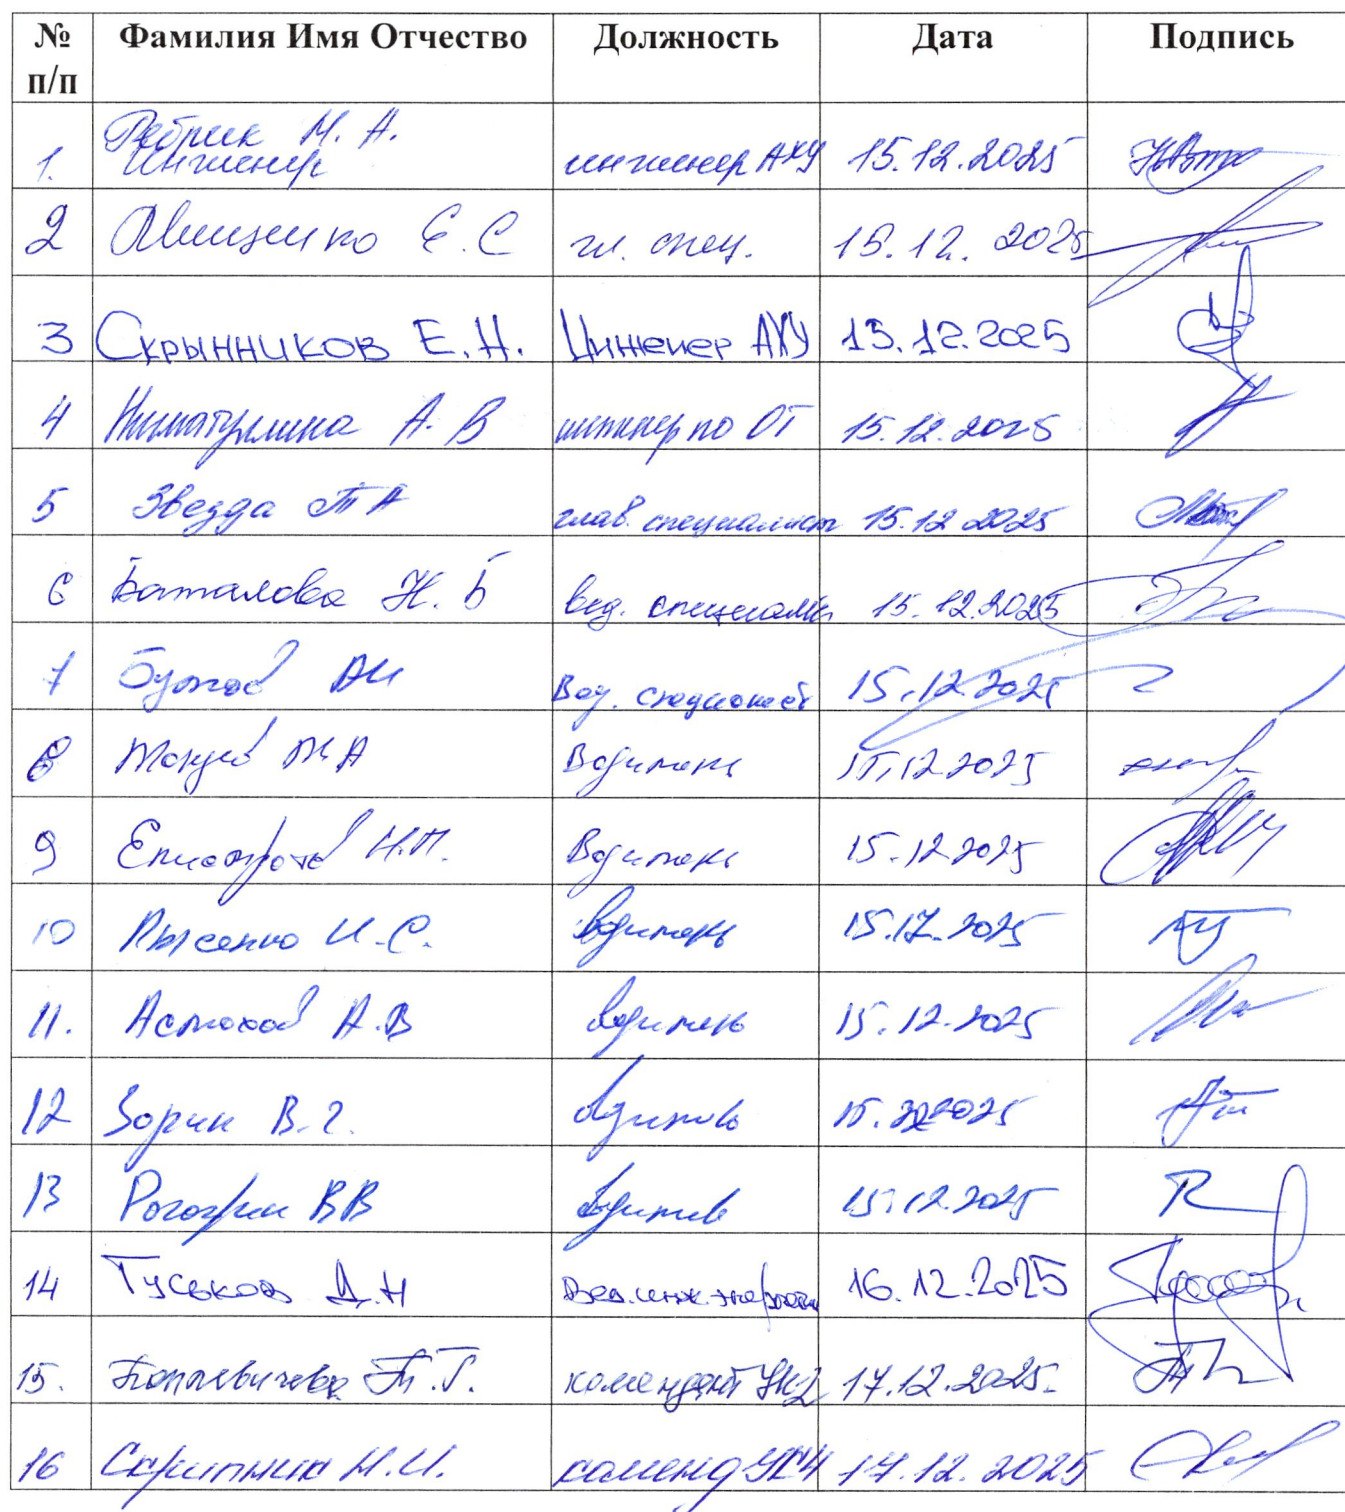 № п/п Фамилия Имя Отчество Должность Дата Подпись
1. Ребрик М. А. Инженер инженер АХУ 15.12.2025
2 Е. С гл. спец. 15.12. 2025
3 Скрынников Е.Н. Инженер АХУ 15.12.2025
4 А. В инженер по ОТ 15.12.2025
5 Звезда Т А глав. специалист 15.12 2025
6 Баталова Н. Б вед. 15.12.2025
7 Вед. 15.12.2025
8 Водитель 15.12.2025
9 Н.П. Водитель 15.12.2025
10 Лысенко И.С. водитель 15.12.2025
11. Астахов А.В водитель 15.12.2025
12 Зорин В.Г. водитель 15.12.2025
13 ВВ водитель 15.12.2025
14 Гуськов Д.Н Вед.инж. 16.12.2025
15. Т.Г. комендант УК2 17.12.2025.
16 Скрипник Н.И. коменд УК4 17.12.2025